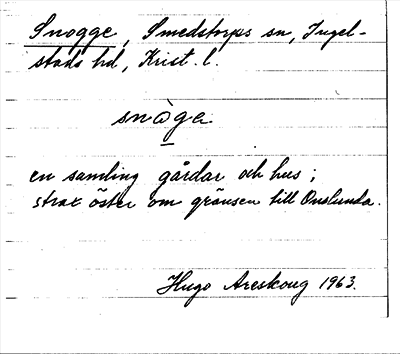 Snogge, Smedstorps sn, Ingel-
stads hd, Krist. l.
snåga
en samling gårdar och hus;
strax öster om gränsen till Onslunda.
Hugo Areskoug 1963.